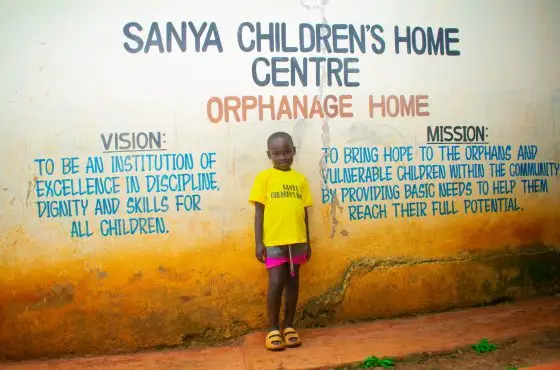 SANYA CHILDREN'S HOME
CENTRE
ORPHANAGE HOME
VISION:
TO BE AN INSTITUTION OF
EXCELLENCE IN DISCIPLINE,
DIGNITY AND SKILLS FOR
ALL CHILDREN.
MISSION:
TO BRING HOPE TO THE ORPHANS AND
VULNERABLE CHILDREN WITHIN THE COMMUNITY
BY PROVIDING BASIC NEEDS TO HELP THEM
REACH THEIR FULL POTENTIAL.
SANYA
CHILDREN'S